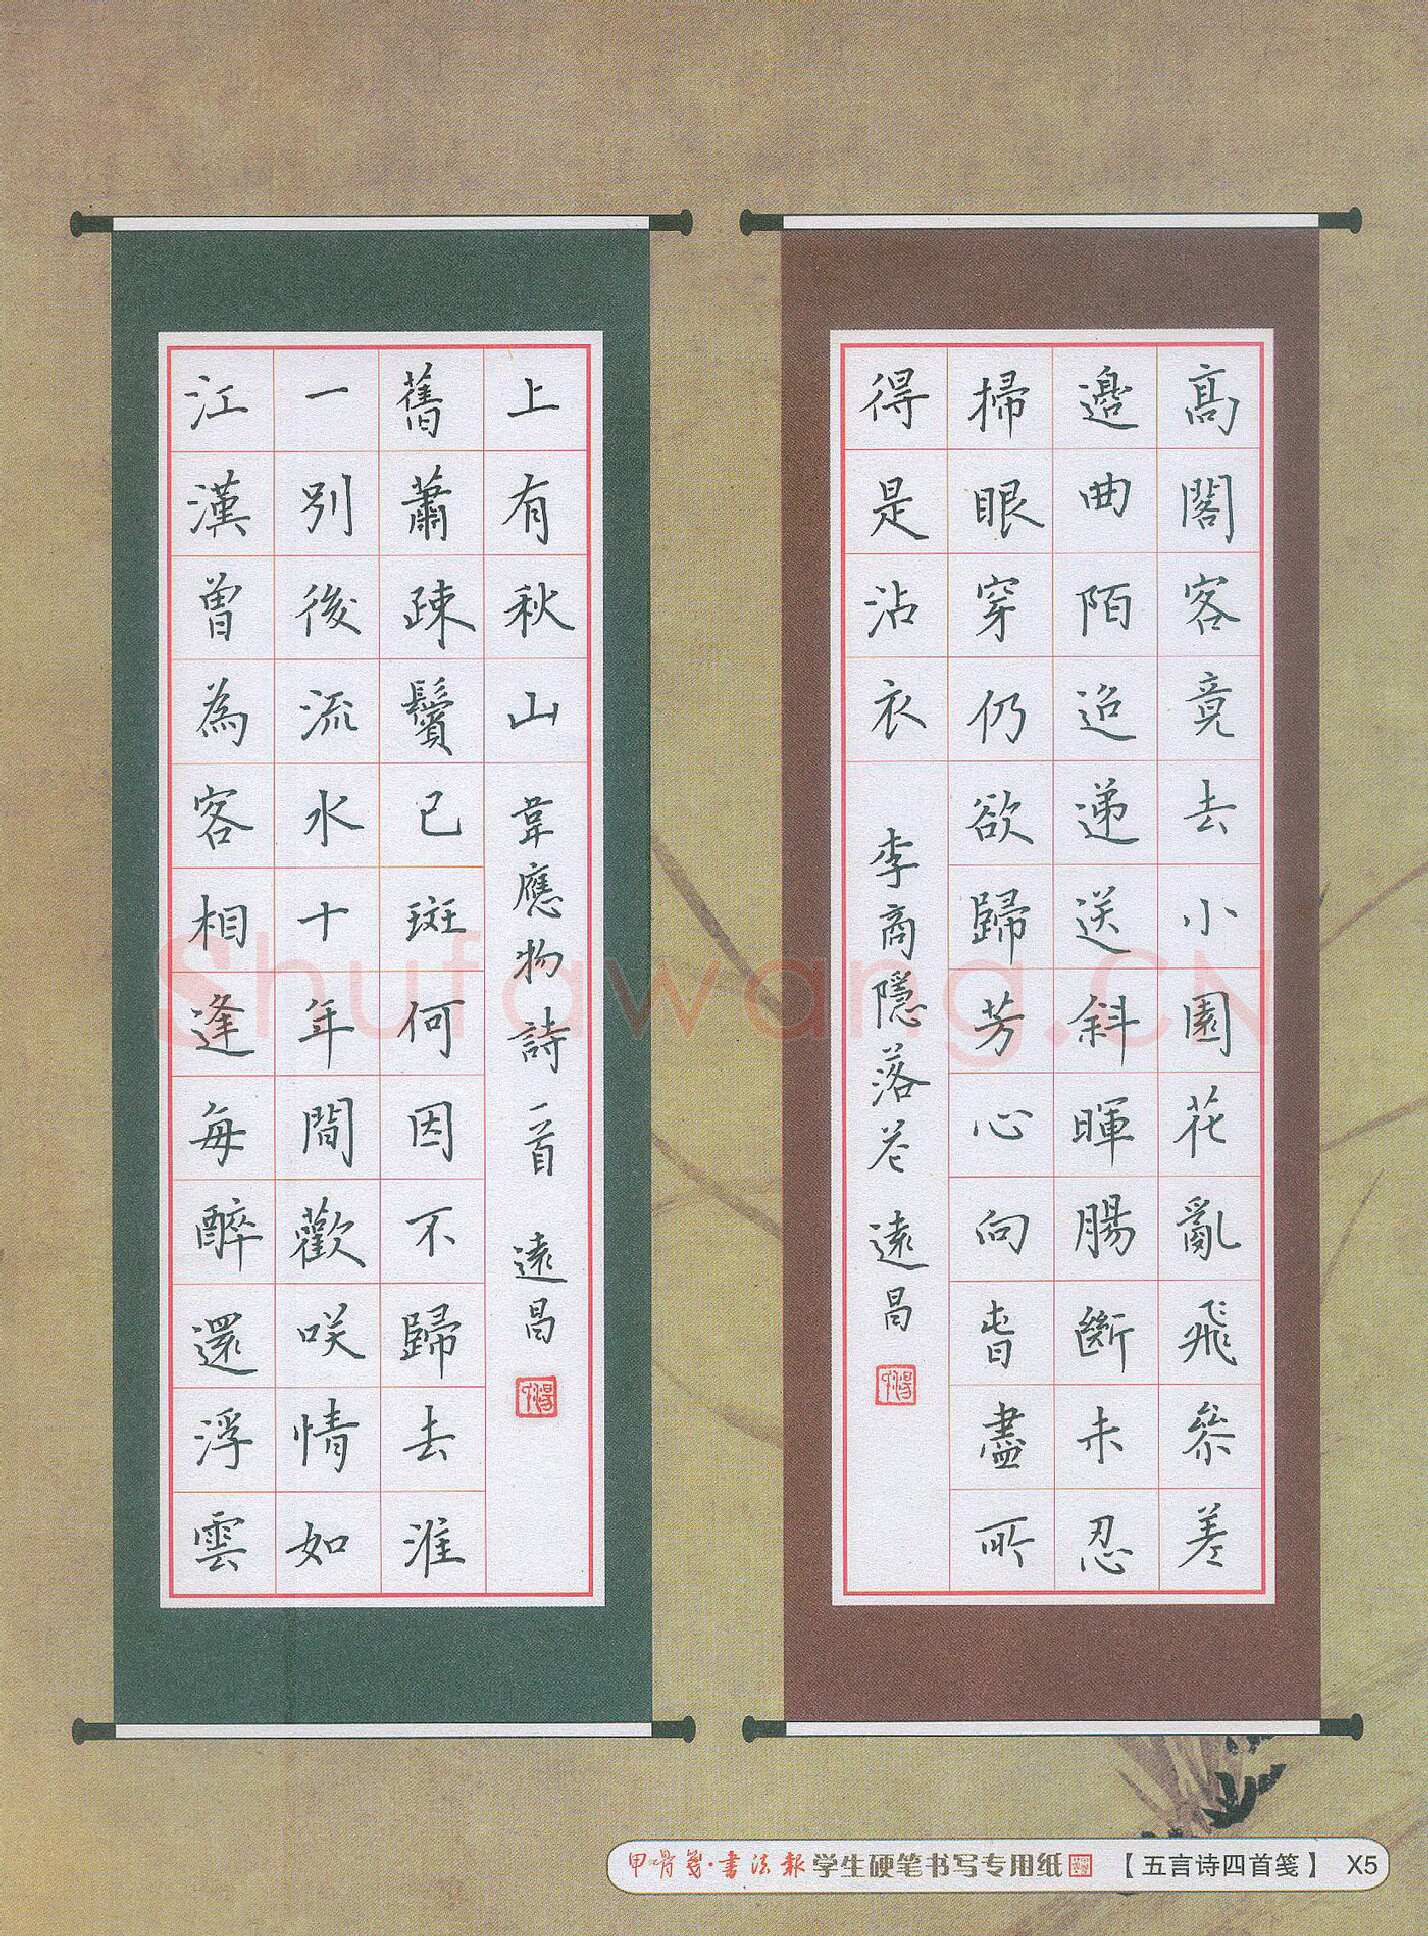 高閣客竟去小園花亂飛參差
邊曲陌迢遞送斜暉腸斷未忍
掃眼穿仍欲歸芳心向旾盡所
得是沾衣 李商隱落花 遠昌
江漢曾為客相逢每醉還浮雲
一別後流水十年間歡咲情如
舊蕭疎鬢已斑何因不歸去淮
上有秋山 韋應物詩一首 遠昌
Shufawang.CN
甲骨箋·書法報 学生硬笔书写专用纸 【五言诗四首笺】 X5